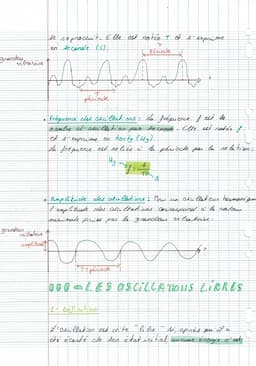 se reproduit. Elle est notée T et s'exprime
en seconde (s).
grandeur
vibratoire
T
période
T
période
• Fréquence des oscillations : la fréquence f est le
nombre d'oscillation par seconde. Elle est notée f
et s'exprime en hertz (Hz)
La fréquence est reliée à la période par la relation :
Hz f = 1/T s
• Amplitude des oscillations : Pour un oscillateur harmonique
l'amplitude des oscillations correspond à la valeur
maximale prise par la grandeur vibratoire.
grandeur
vibratoire
amplitude
T = période
LES OSCILLATIONS LIBRES
1 - Définition
L'oscillation est dite "libre" si, après qu'il a
été écarté de son état initial, aucune énergie n'est